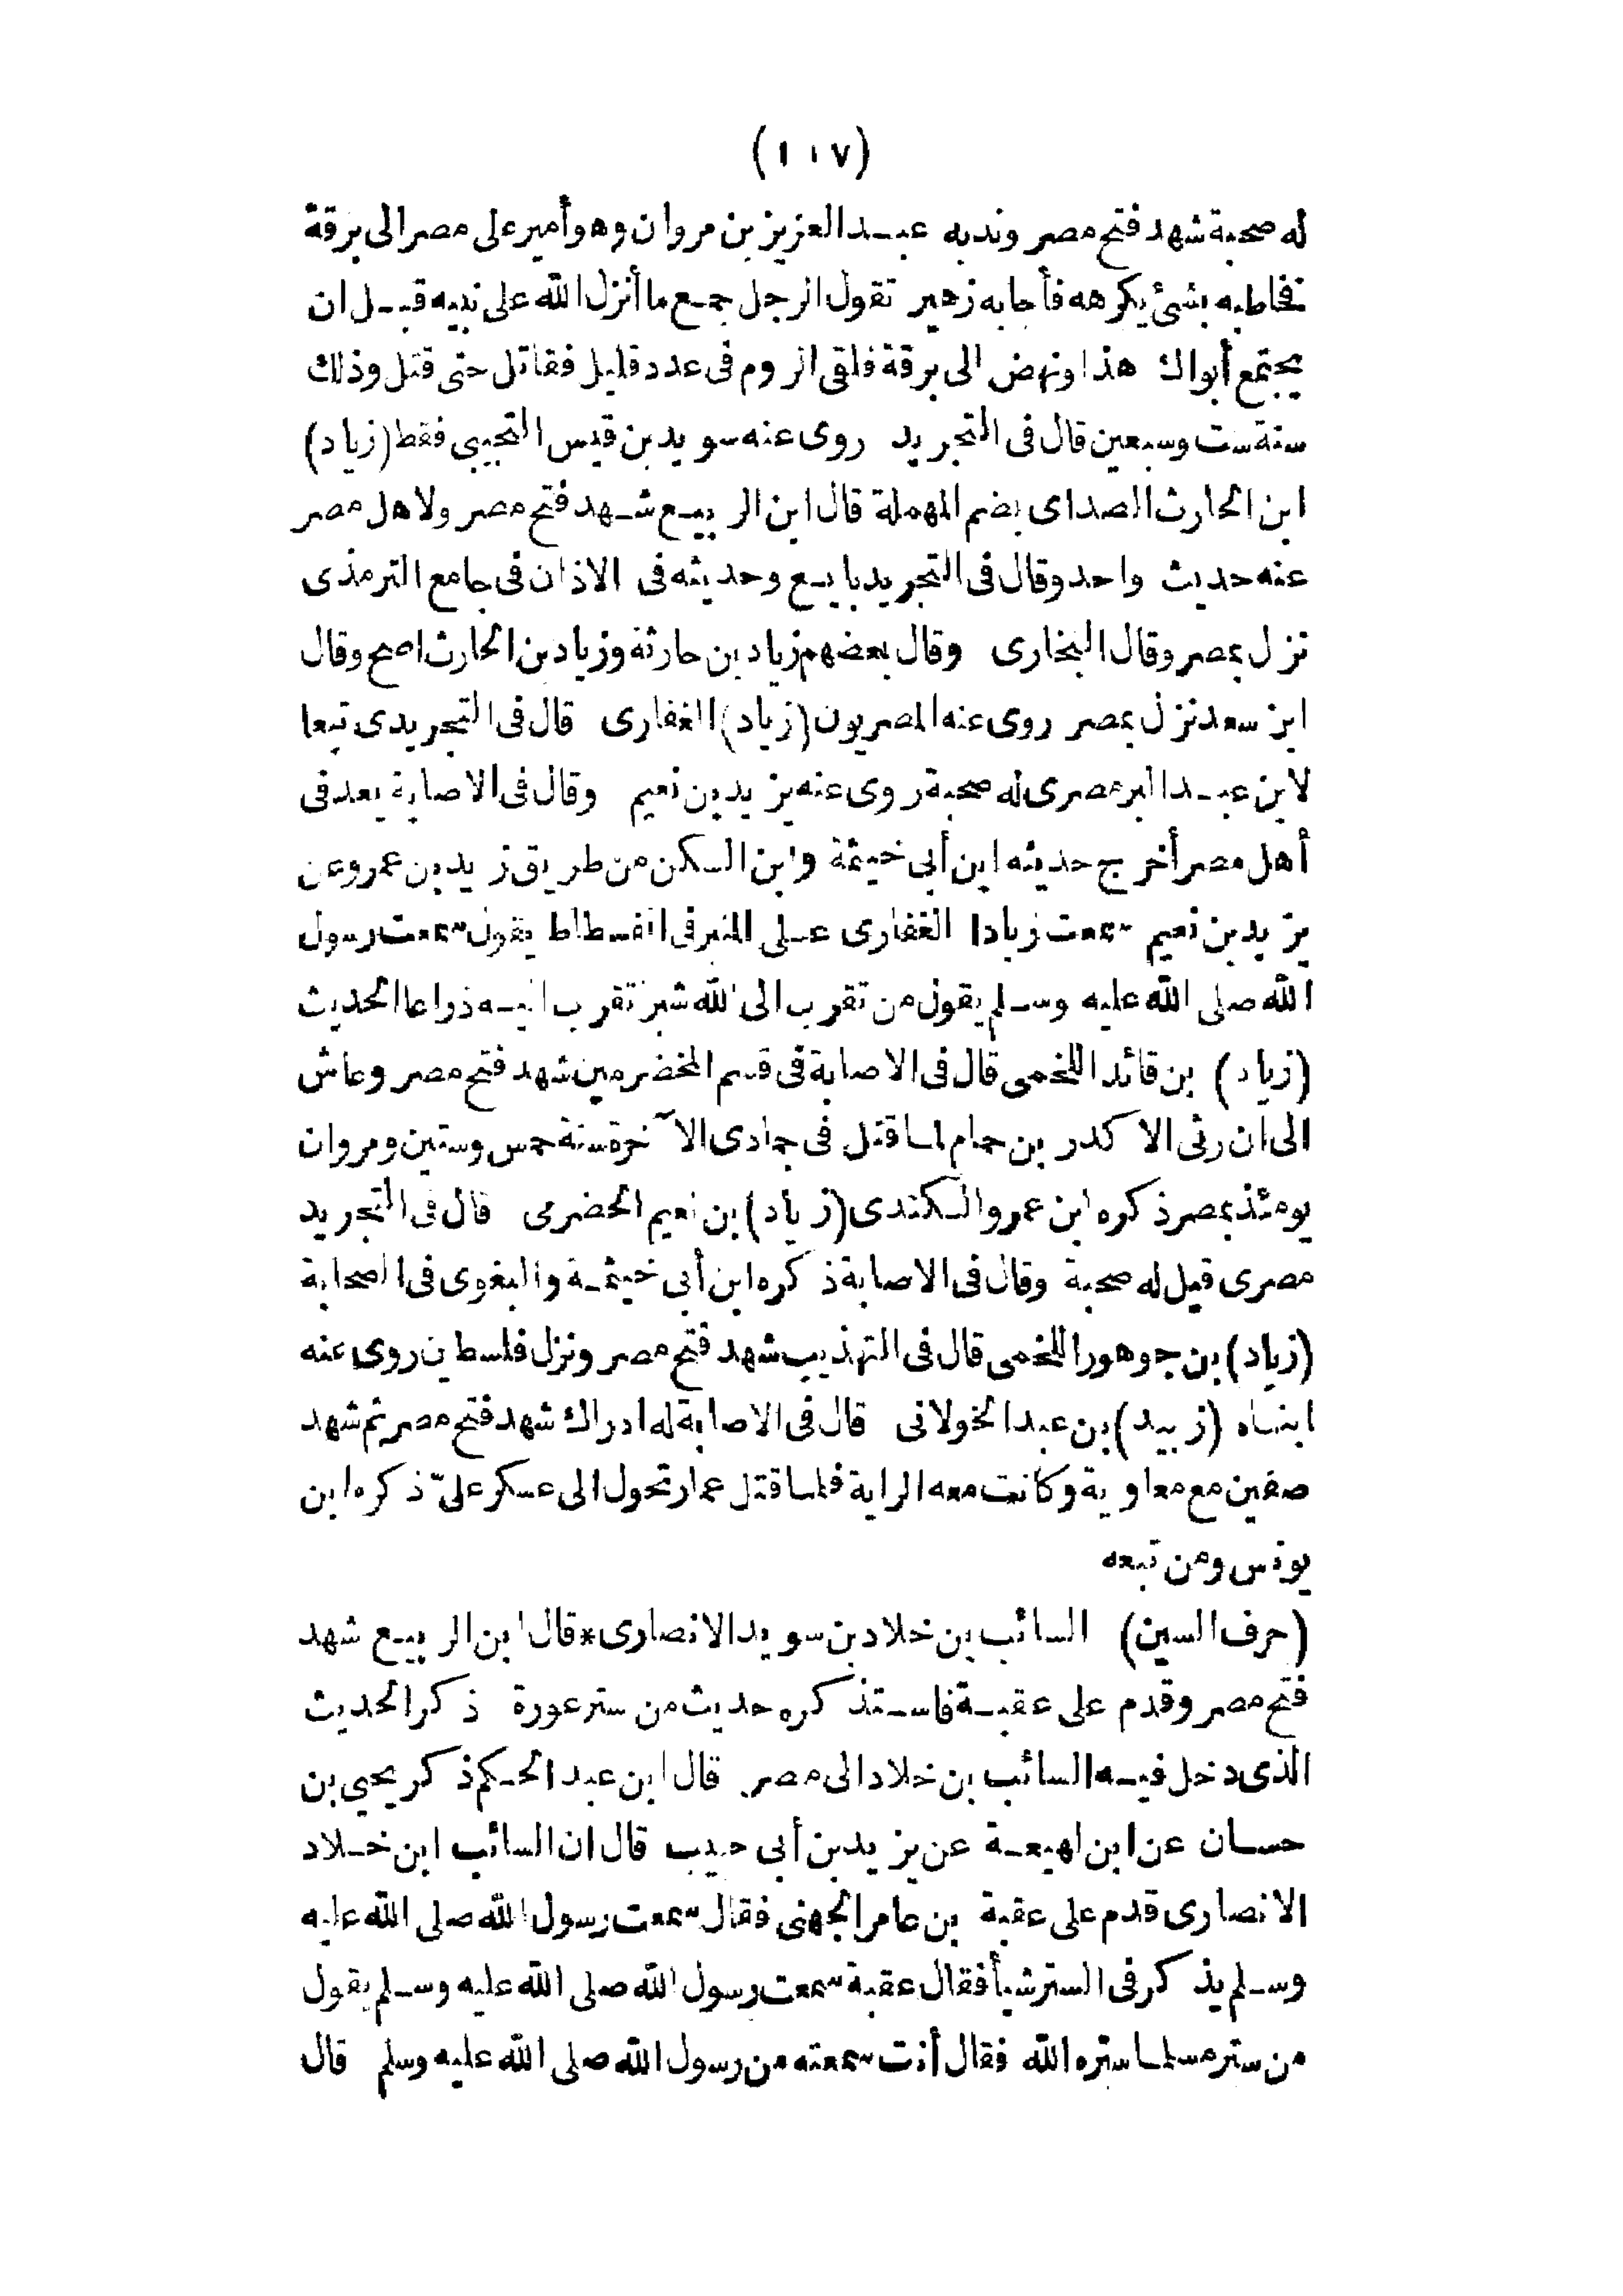 (١١٧)
له صحبة شهد فتح مصر وندبه عبد العزيز بن مروان وهو أمير على مصر الى برقة
فخاطبه بشئ يكرهه فأجابه زهير تقول لرجل جمع ما أنزل الله على نبيه قبل ان
يجتمع أبواك هذا ونهض الى برقة فلقى الروم فى عدد قليل فقاتل حتى قتل وذلك
سنة ست وسبعين قال فى التجريد روى عنه سويد بن قيس التجيبى فقط (زياد)
ابن الحارث الصداى بضم المهملة قال ابن الربيع شهد فتح مصر ولاهل مصر
عنه حديث واحد وقال فى التجريد بايع وحديثه فى الاذان فى جامع الترمذى
نزل بمصر وقال البخارى وقال بعضهم زياد بن حارثة وزياد بن الحارث اصح وقال
ابن سعد نزل بمصر روى عنه المصريون (زياد) الغفارى قال فى التجريدى تبعا
لابن عبد البر مصرى له صحبة روى عنه يزيد بن نعيم وقال فى الاصابة يعد فى
أهل مصر أخرج حديثه ابن أبى خيثمة وابن السكن من طريق زيد بن عمرو عن
يزيد بن نعيم سمعت زيادا الغفارى على المنبر فى الفسطاط يقول سمعت رسول
الله صلى الله عليه وسلم يقول من تقرب الى الله شبرا تقرب اليه ذراعا الحديث
(زياد) بن قائد اللخمى قال فى الاصابة فى قسم المخضرمين شهد فتح مصر وعاش
الى ان رثى الاكدر بن حمام لما قتل فى جمادى الآخرة سنة خمس وستين ومروان
يومئذ بمصر ذكره ابن عمرو الكندى (زياد) بن نعيم الحضرمى قال فى التجريد
مصرى قيل له صحبة وقال فى الاصابة ذكره ابن أبى خيثمة والبغوى فى الصحابة
(زياد) بن جوهور اللخمى قال فى التهذيب شهد فتح مصر ونزل فلسطين روى عنه
ابنه (زبيد) بن عبد الخولانى قال فى الاصابة له ادراك شهد فتح مصر ثم شهد
صفين مع معاوية وكانت معه الراية فلما قتل عمار تحول الى عسكر علىّ ذكره ابن
يونس ومن تبعه
(حرف السين) السائب بن خلاد بن سويد الانصارى * قال ابن الربيع شهد
فتح مصر وقدم على عقبة فاستذكره حديث من ستر عورة ذكر الحديث
الذى دخل فيه السائب بن خلاد الى مصر قال ابن عبد الحكم ذكر يحيى بن
حسان عن ابن لهيعة عن يزيد بن أبى حبيب قال ان السائب ابن خلاد
الانصارى قدم على عقبة بن عامر الجهنى فقال سمعت رسول الله صلى الله عليه
وسلم يذكر فى الستر شيأ فقال عقبة سمعت رسول الله صلى الله عليه وسلم يقول
من ستر مسلما ستره الله فقال أنت سمعته من رسول الله صلى الله عليه وسلم قال